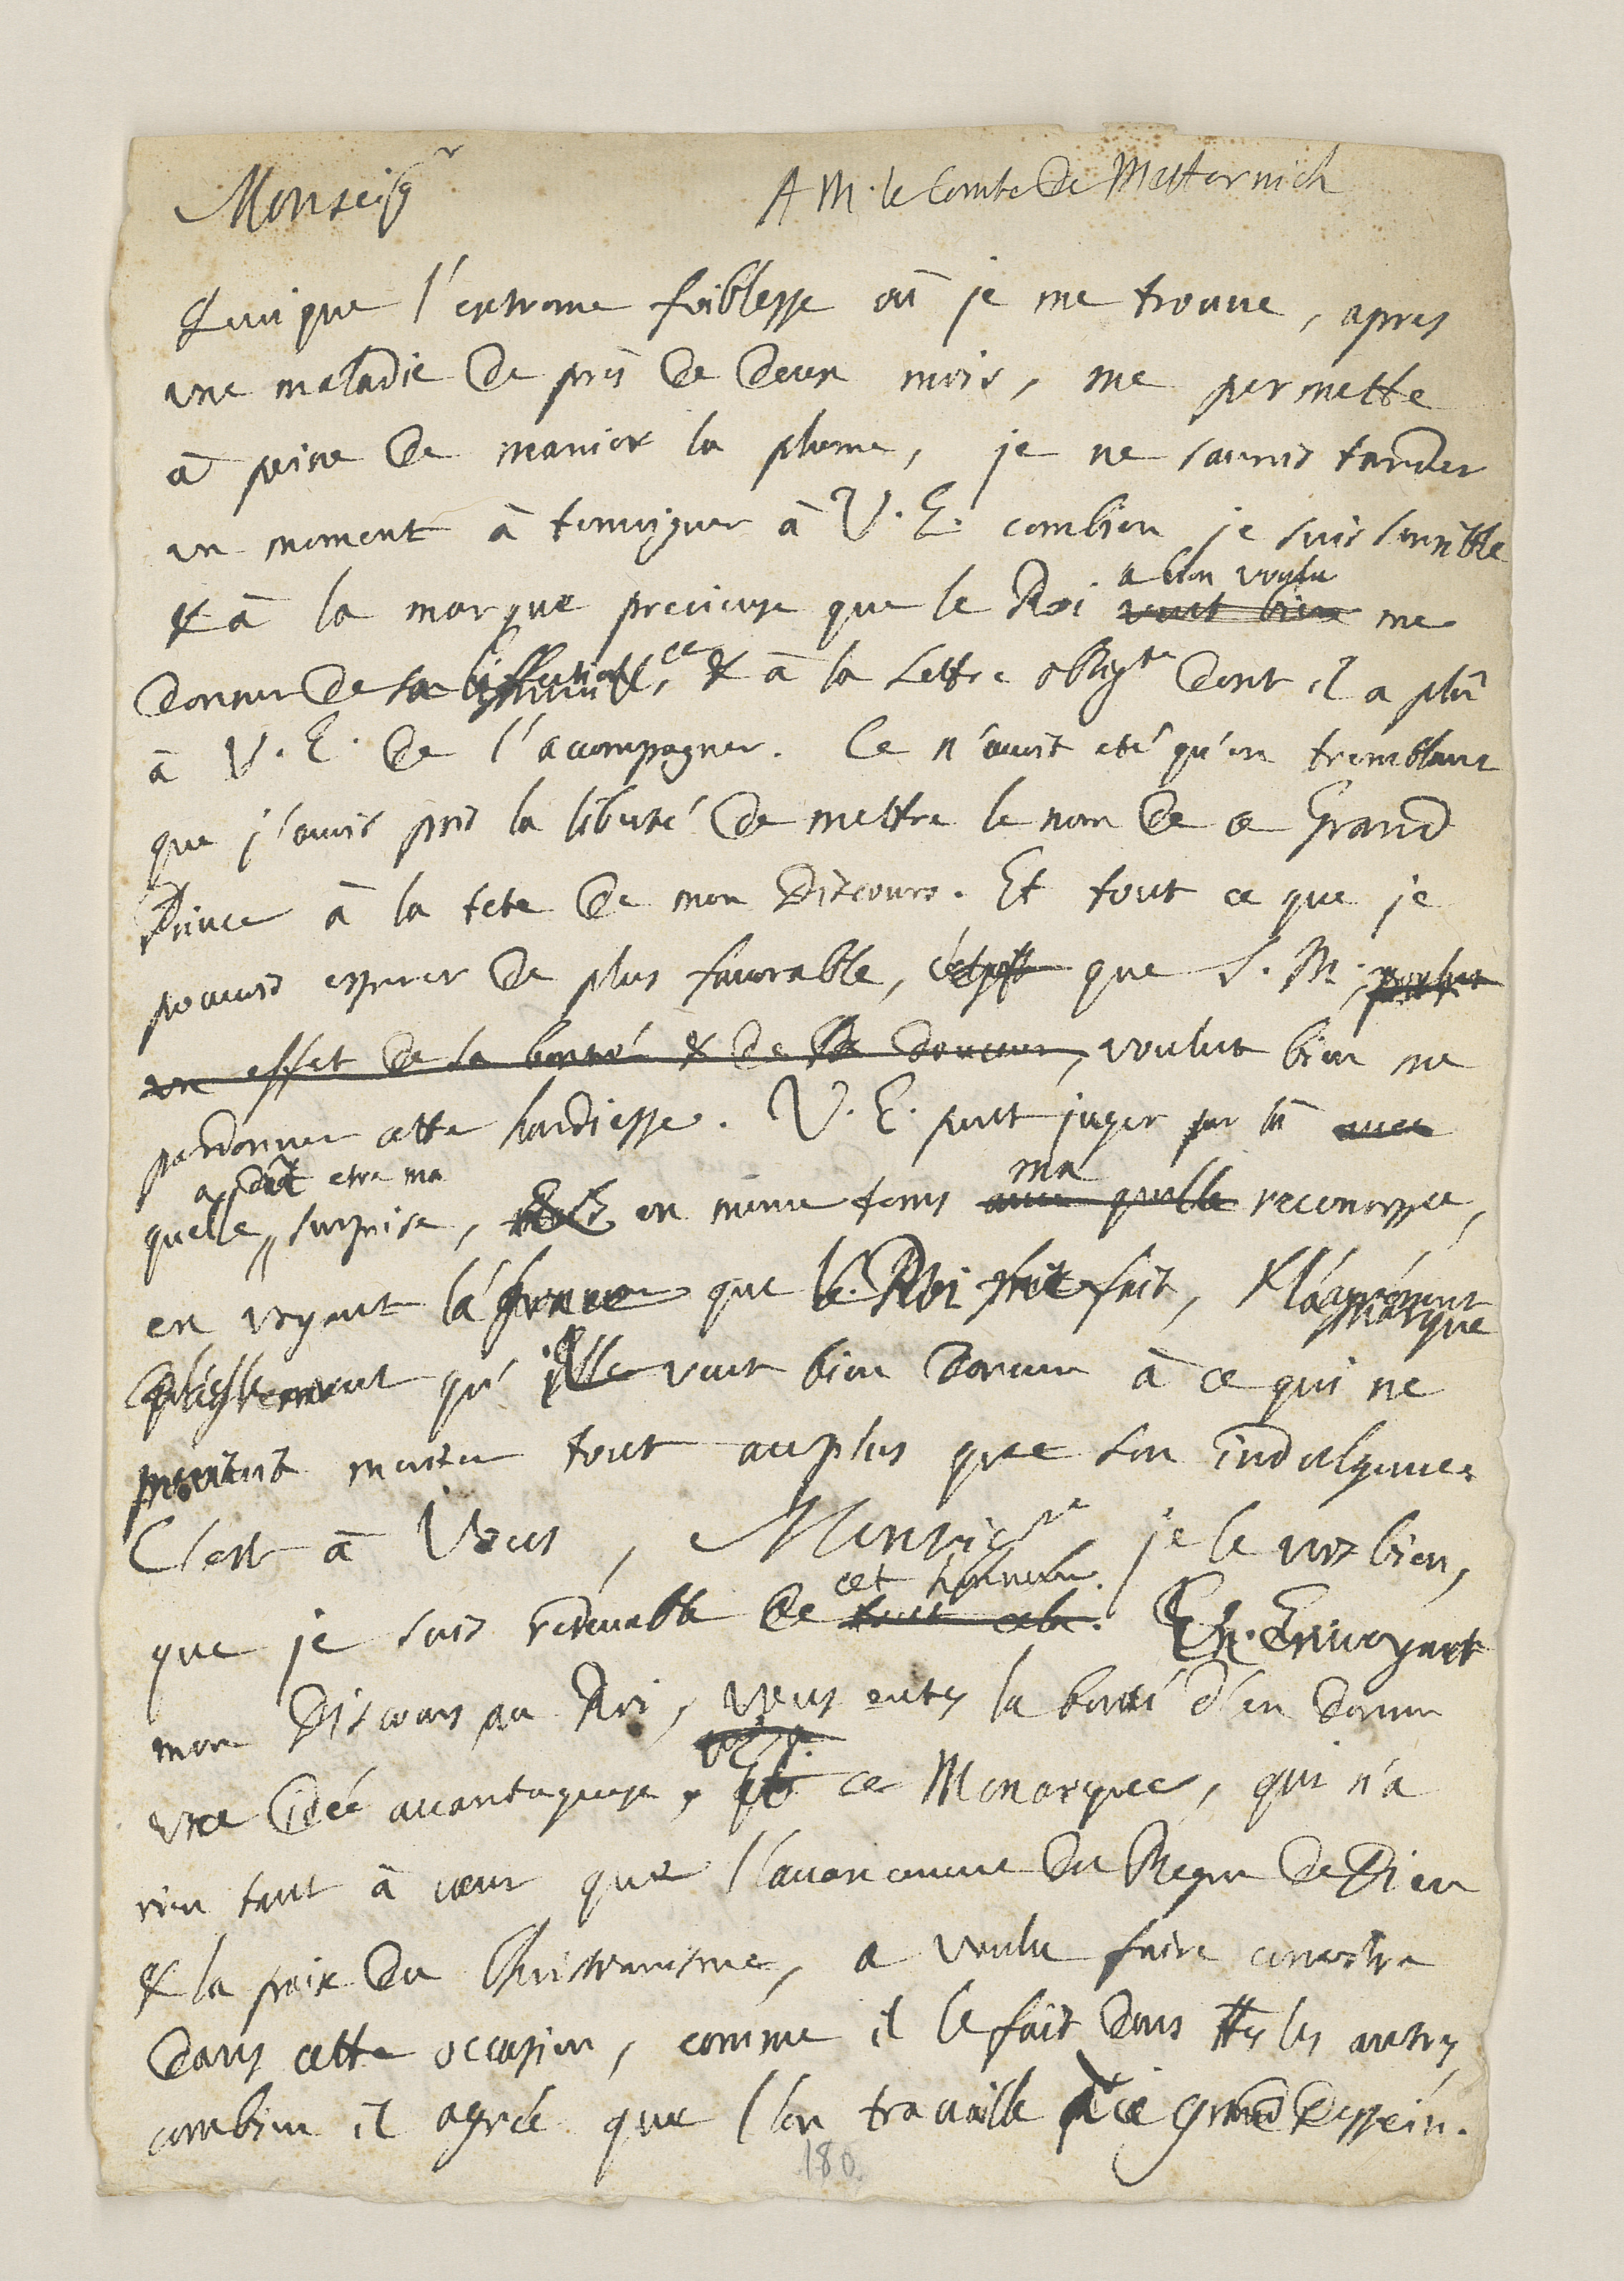 Monseigr
A M. le Comte de Metternich
Quoique l'extreme foiblesse où je me trouve, apres
une maladie de près de deux mois, me permette
à peine de manier la plume, je ne saurois tarder
un moment à temoigner à V. E. combien je suis sensible
& à la marque precieuse que le Roi a bien voulu veut bien me
donner de sa & à la Lettre obligte dont il a plû
à V. E. de l'accompagner. Ce n'avoit eté qu'en tremblant
que j'avois pris la liberté de mettre le nom de ce Grand
Prince à la tete de mon Discours. Et tout ce que je
pouvois esperer de plus favorable, que S. M.
un effet de sa bonté & de sa douceur, voulut bien me
pardonner cette hardiesse. V. E. peut juger par là avec
a dût etre ma
quelle surprise, en même tems ma avec quelle reconoissce,
en voyant que le Roi fait, &
qu'il veut bien donner à ce qui ne
meriter tout au plus que son indulgence.
C'est à Vous, Monseigr je le vois bien,
que je suis redevable de cet honneur. tout cela. En Envoyant
mon Discours au Roi, vous eutes la bonté d'en donner
une idée avantageuse, Et ce Monarque, qui n'a
rien tant à cœur que l'avancemt du Regne de Dieu
& la paix du Christianisme, a voulu faire conoitre
dans cette occasion, comme il le fait dans ttes les autres,
combien il agrée que l'on travaille à ce grand Dessein.
180